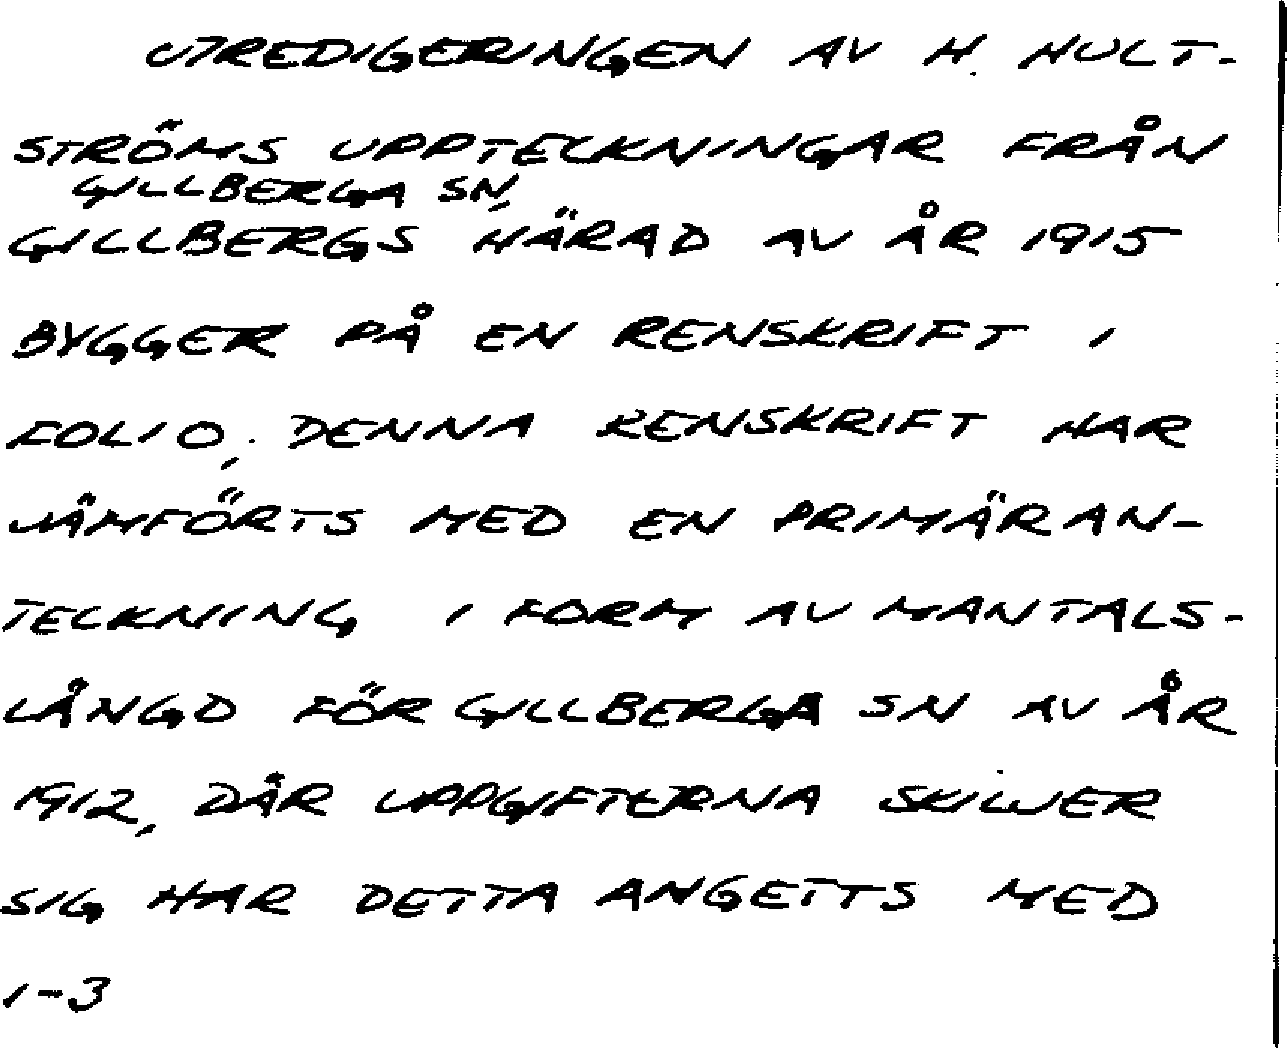 UTREDIGERINGEN AV H. HULT-
STRÖMS UPPTECKNINGAR FRÅN
GILLBERGA SN,
GILLBERGS HÄRAD AV ÅR 1915
BYGGER PÅ EN RENSKRIFT I
FOLIO; DENNA RENSKRIFT HAR
JÄMFÖRTS MED EN PRIMÄRAN-
TECKNING I FORM AV MANTALS-
LÄNGD FÖR GILLBERGA SN AV ÅR
1912, DÄR UPPGIFTERNA SKILJER
SIG HAR DETTA ANGETTS MED
1-3